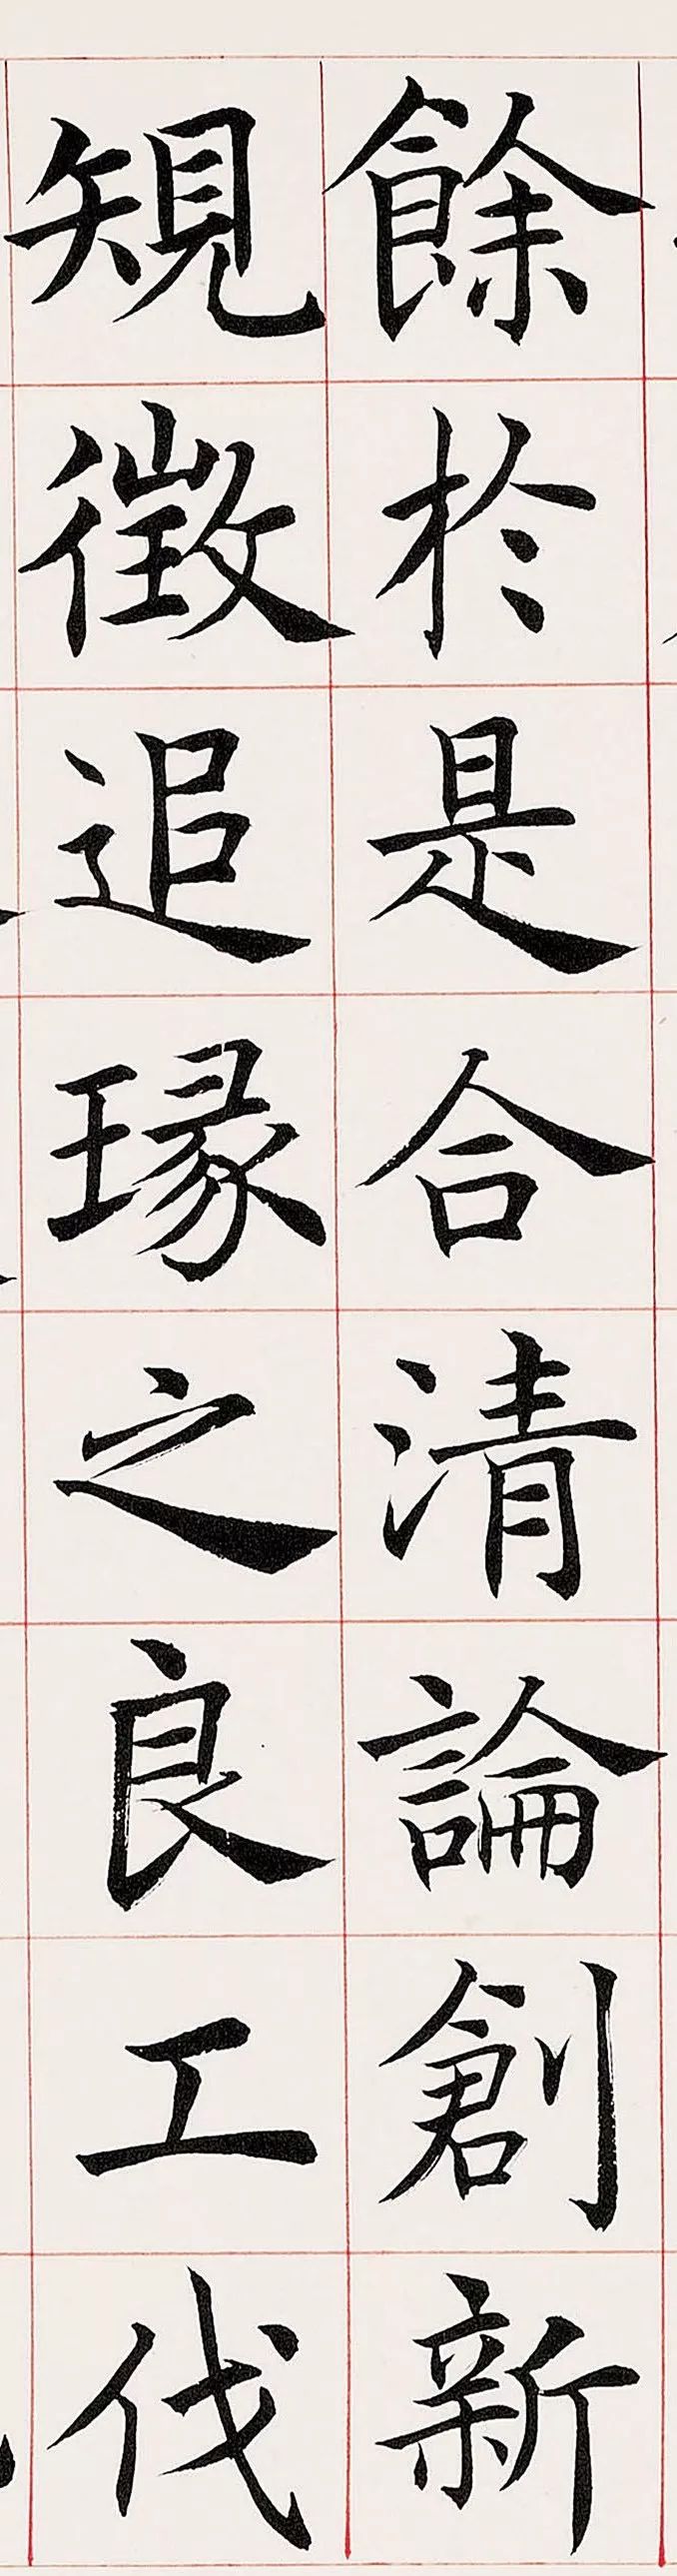 餘於是合清論創新
規徵追瑑之良工伐